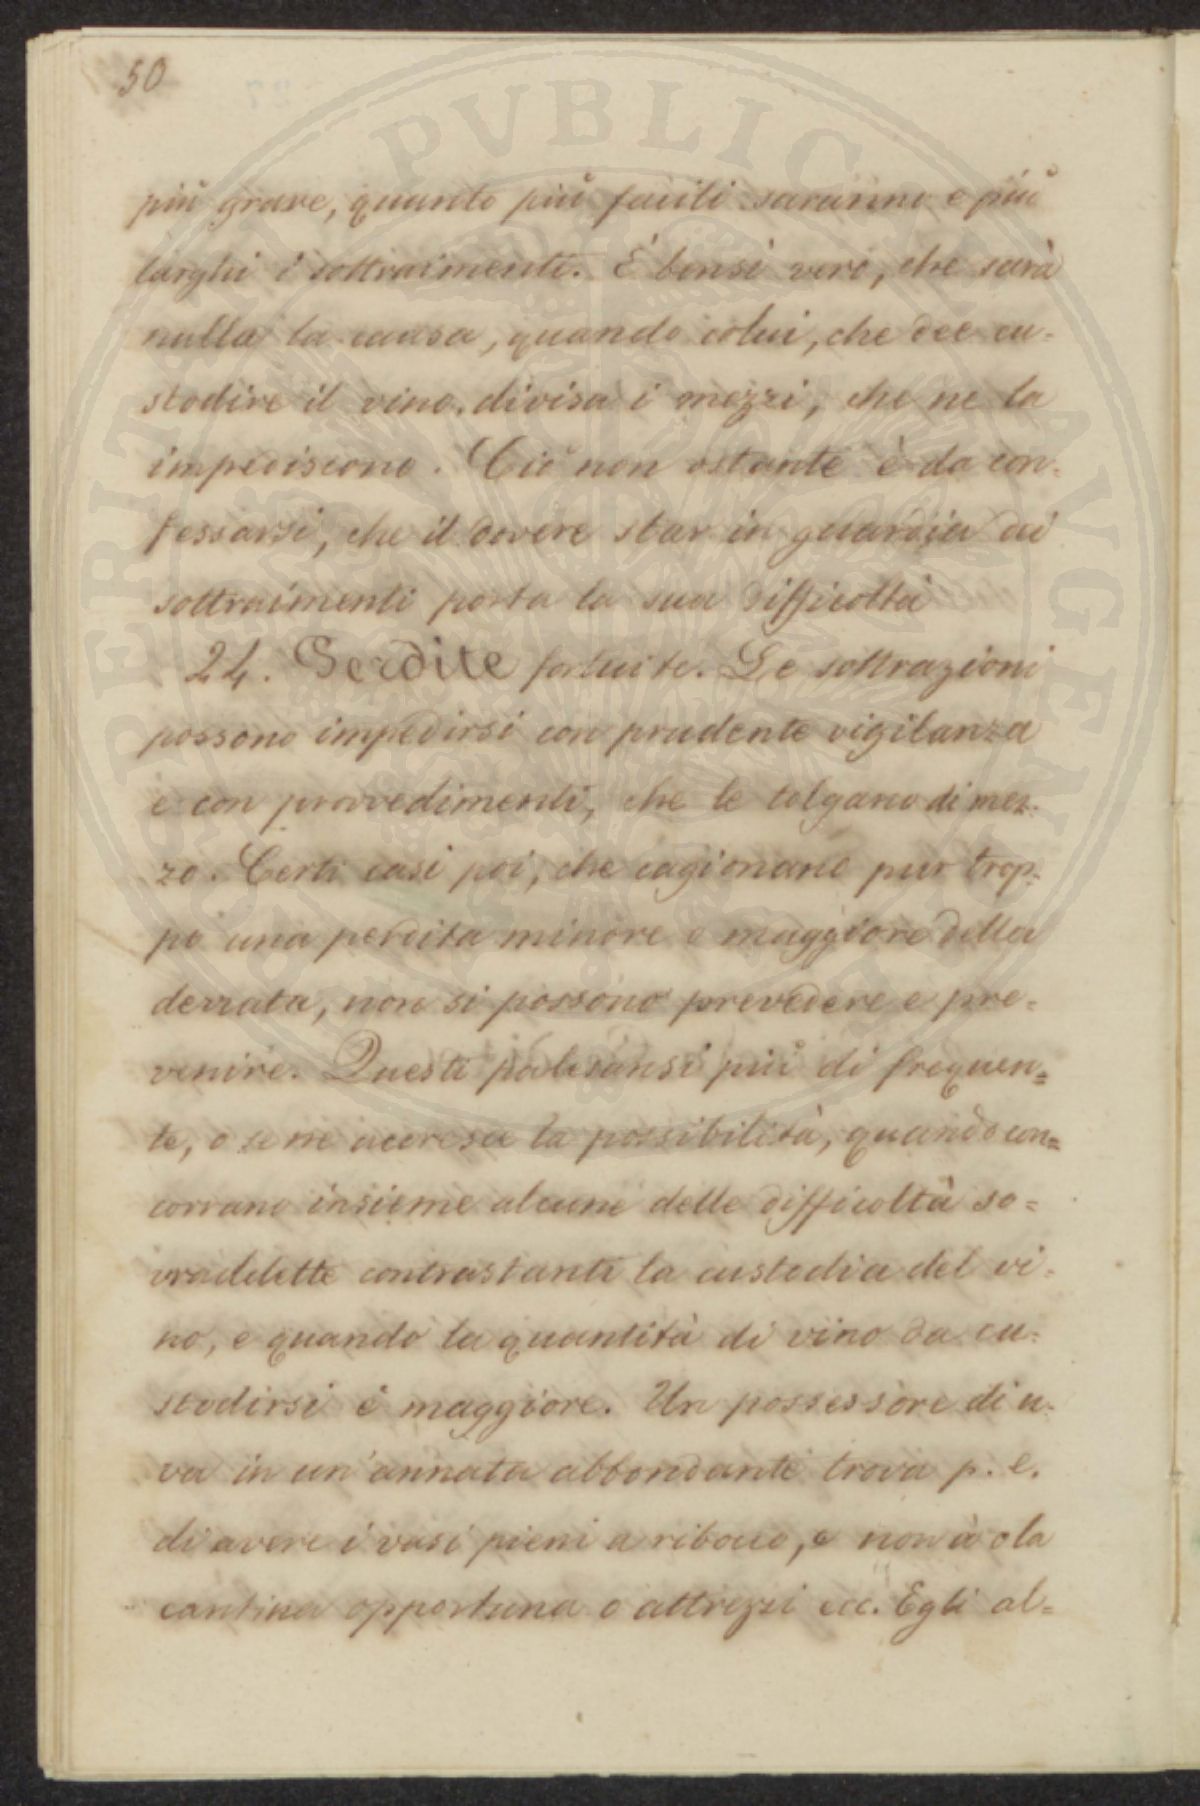 50
più grave, quanto più facili saranno e più
larghi i sottraimenti. È bensì vero, che sarà
nulla la causa, quando colui, che dee cu-
stodire il vino, divisa i mezzi, che ne la
impediscono. Ciò non ostante è da con-
fessarsi, che il dovere star in guardia di
sottraimenti porta la sua difficoltà
24. Perdite fortuite. Le sottrazioni
possono impedirsi con prudente vigilanza
e con provvedimenti, che le tolgano di mez-
zo. Certi casi poi, che cagionano pur trop-
po una perdita minore o maggiore della
derrata, non si possono prevedere e pre-
venire. Questi palesansi più di frequen=
te, o se ne accresce la possibilità, quando con=
corrano insieme alcune delle difficoltà so=
vradette contrastanti la custodia del vi-
no, e quando la quantità di vino da cu-
stodirsi è maggiore. Un possessore di u-
va in un'annata abbondante trova p. e.
di avere i vasi pieni a ribocco, e non à o la
cantina opportuna o attrezzi ecc. Egli al=
PERITATI PVBLICAE AVGENDAE